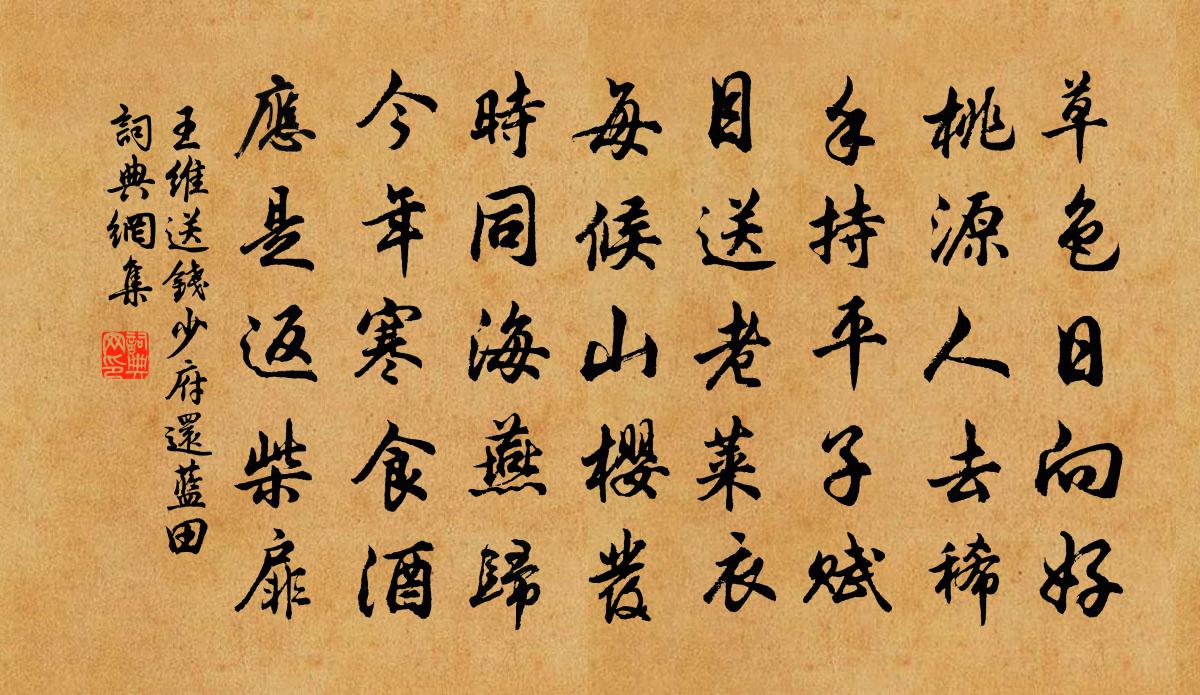 草色日向好
桃源人去稀
手持平子賦
目送老萊衣
每候山櫻發
時同海燕歸
今年寒食酒
應是返柴扉
王維送錢少府還藍田
詞典網集
詞典網印